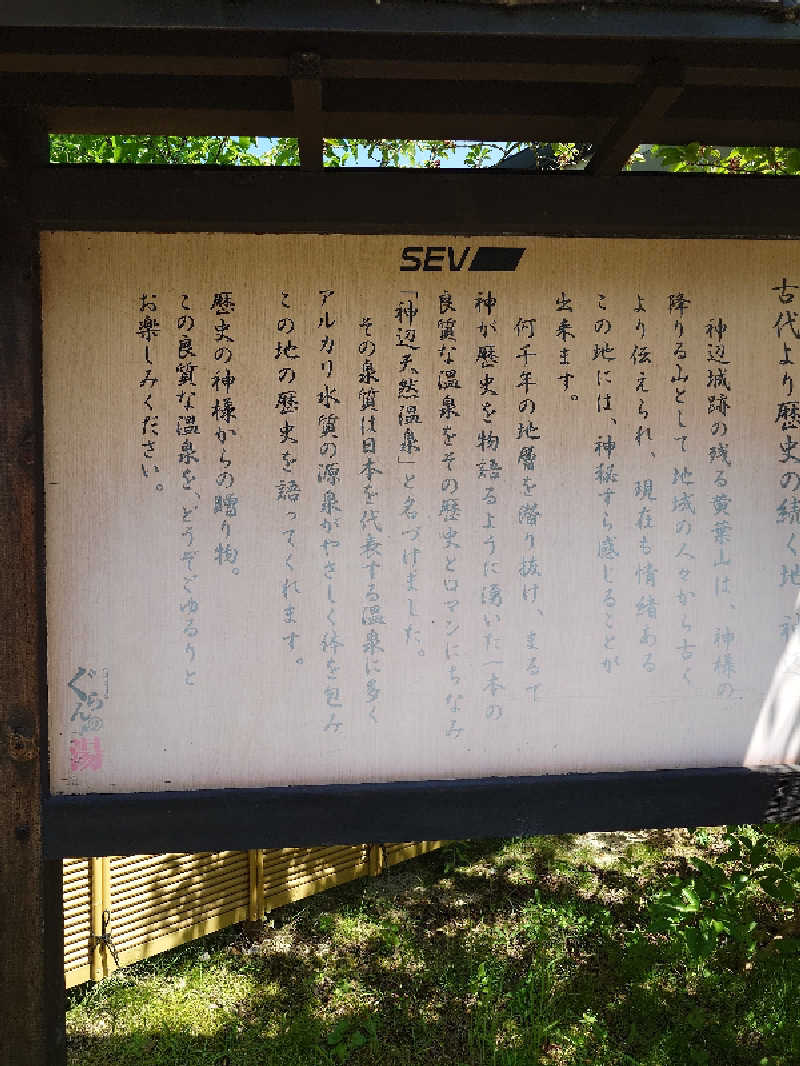 SEV
古代より歴史の続く地
神辺城跡の残る黄葉山は、神様の
降りる山として地域の人々から古く
より伝えられ、現在も情緒ある
この地には、神秘すら感じることが
出来ます。
何千年の地層を潜り抜け、まるで
神が歴史を物語るように湧いた一本の
良質な温泉をその歴史とロマンにちなみ
「神辺天然温泉」と名づけました。
その泉質は日本を代表する温泉に多く
アルカリ水質の源泉がやさしく体を包み
この地の歴史を語ってくれます。
歴史の神様からの贈り物。
この良質な温泉を、どうぞごゆるりと
お楽しみください。
ぐらんの湯